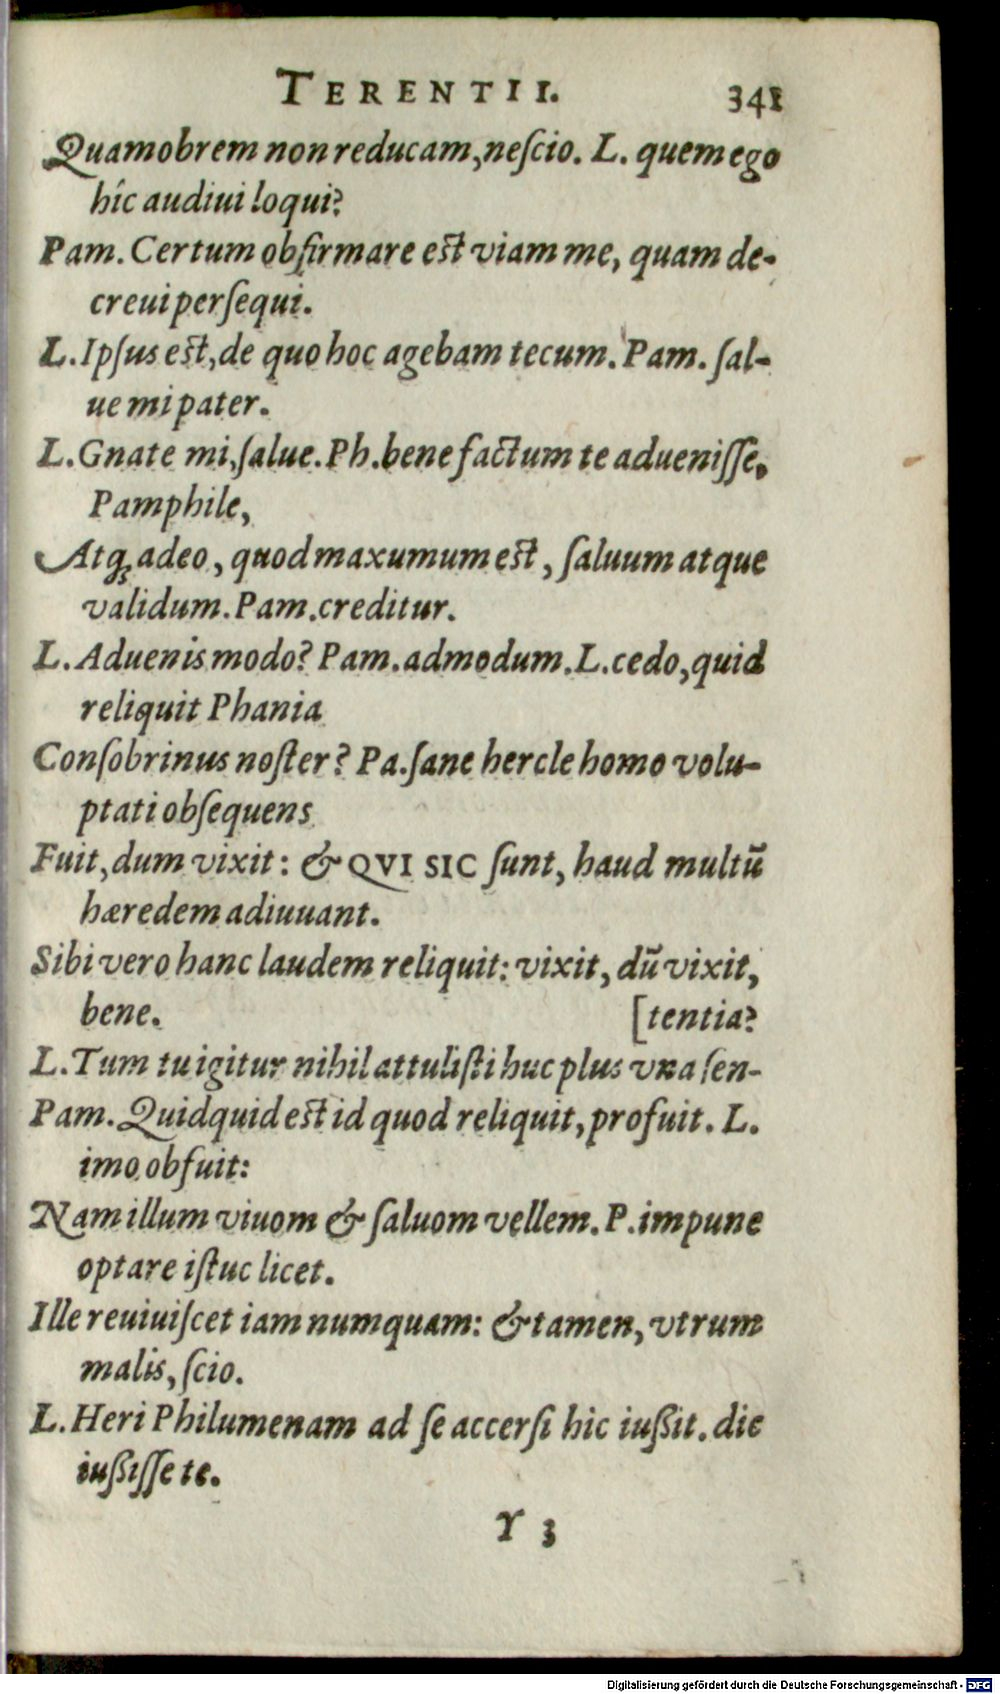 TERENTII. 341
Quamobrem non reducam, neſcio. L. quem ego
hîc audiui loqui?
Pam. Certum obfirmare eſt viam me, quam de-
creui perſequi.
L. Ipſus eſt, de quo hoc agebam tecum. Pam. ſal-
ue mi pater.
L. Gnate mi, ſalue. Ph. bene factum te adueniſſe,
Pamphile,
Atq; adeo, quod maxumum eſt, ſaluum atque
validum. Pam. creditur.
L. Aduenis modo? Pam. admodum. L. cedo, quid
reliquit Phania
Conſobrinus noſter? Pa. ſane hercle homo volu-
ptati obſequens
Fuit, dum vixit: & QVI SIC ſunt, haud multū
hæredem adiuuant.
Sibi vero hanc laudem reliquit: vixit, dū vixit,
bene. [tentia?
L. Tum tu igitur nihil attuliſti huc plus vna ſen-
Pam. Quidquid eſt id quod reliquit, profuit. L.
imo obfuit:
Nam illum viuom & ſaluom vellem. P. impune
optare iſtuc licet.
Ille reuiuiſcet iam numquam: & tamen, vtrum
malis, ſcio.
L. Heri Philumenam ad ſe accerſi hic iußit. dic
iußiſſe te.
Y 3
Digitalisierung gefördert durch die Deutsche Forschungsgemeinschaft - DFG